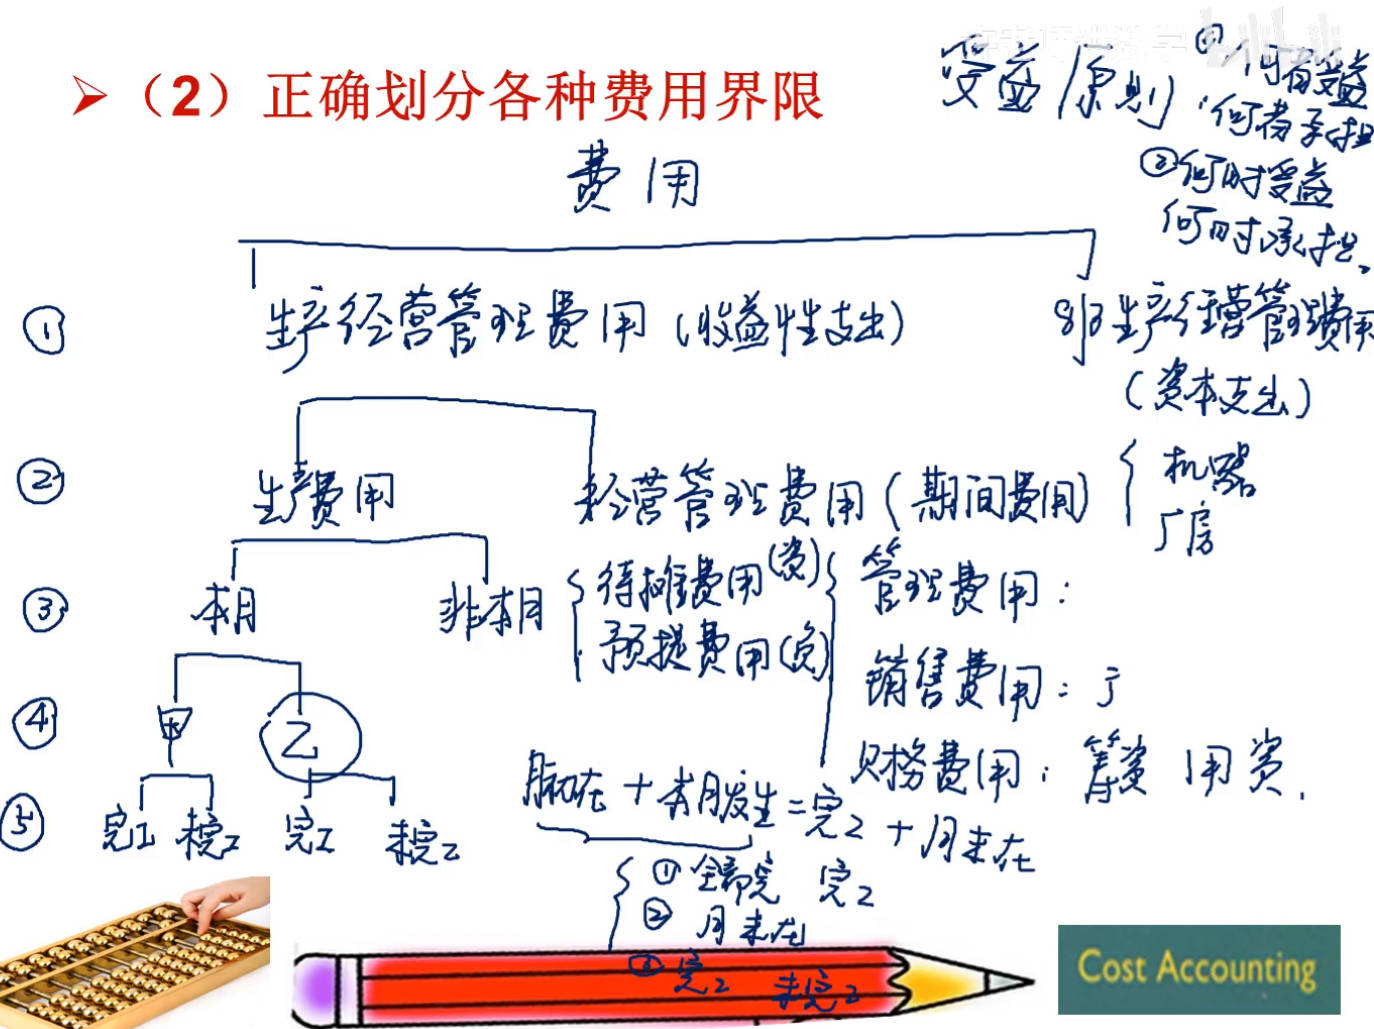 （2）正确划分各种费用界限
受益原则
①何者受益
何者承担
②何时受益
何时承担。
费用
① 生产经营管理费用（收益性支出） 非生产经营管理费用
（资本支出）
机器
厂房
② 生产费用 经营管理费用（期间费用）
③ 本月 非本月
待摊费用（资）
预提费用（负）
管理费用：
销售费用：
财务费用：筹资 用资.
④ 甲 乙
⑤ 完工 未完工 完工 未完工
月初在+本月发生=完工+月末在
①全部完 完工
②月末在
③完工 未完工
Cost Accounting